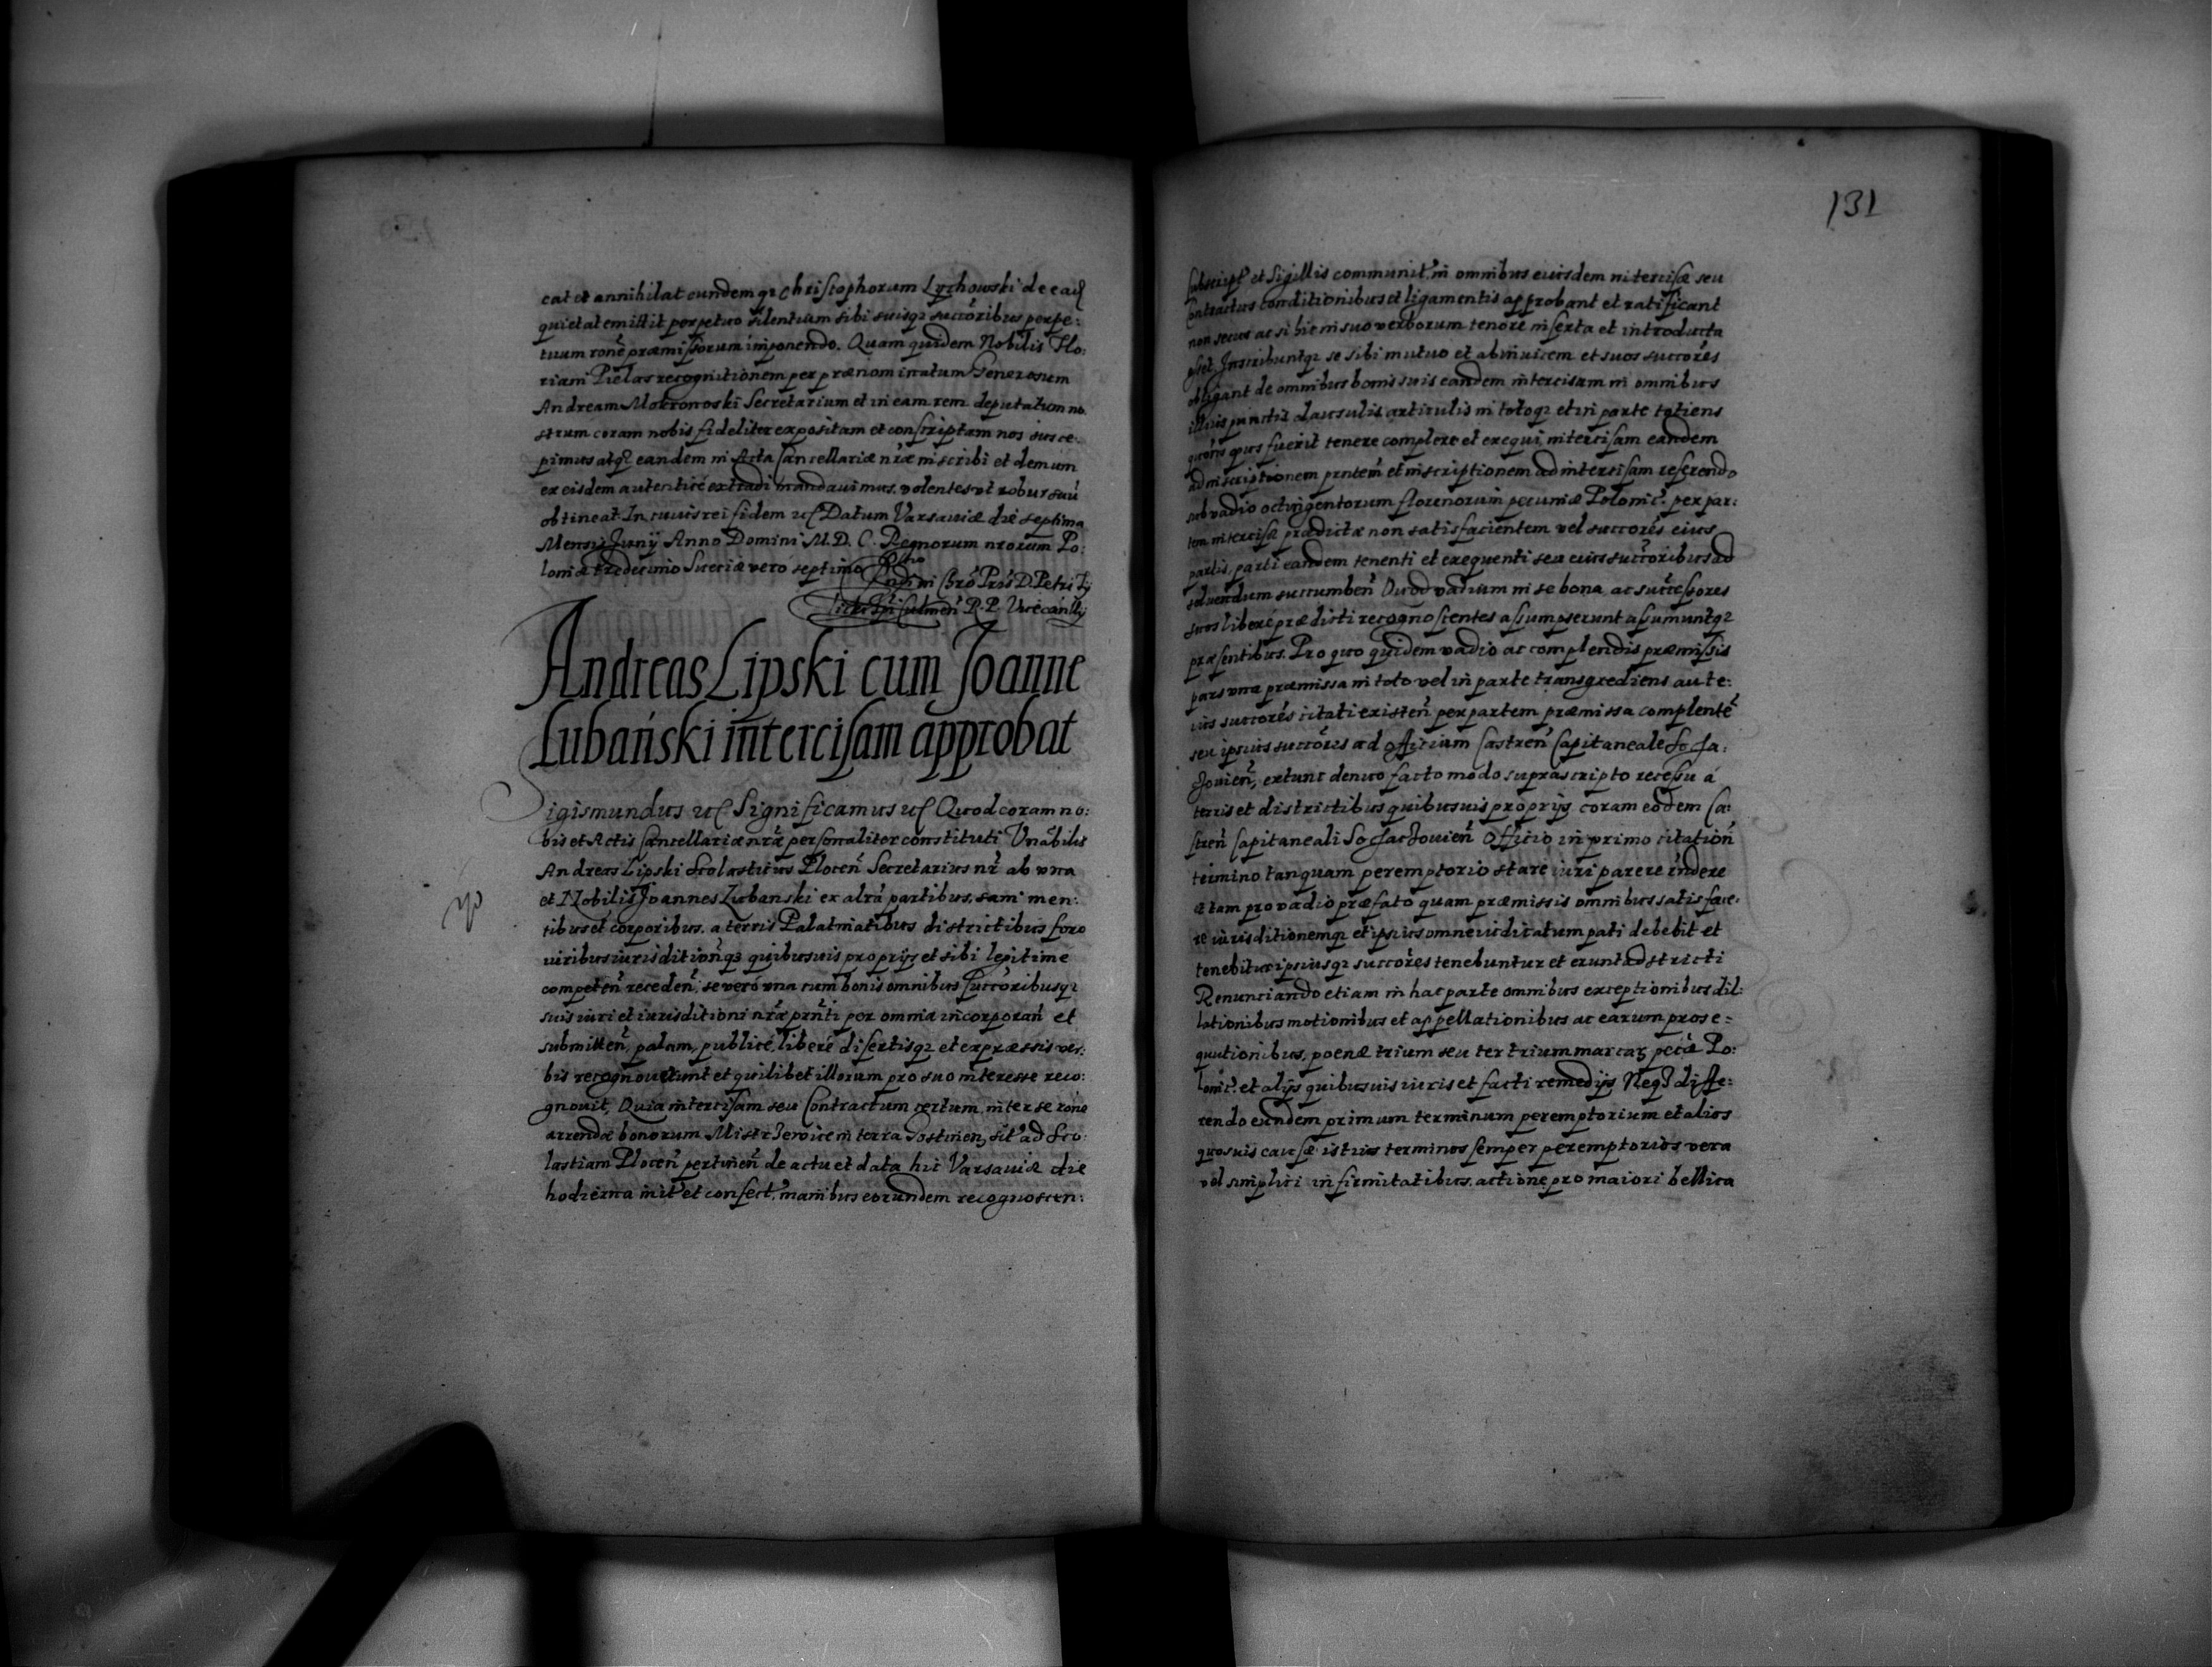 cat et annihilat eundemq3 Christophorum Lychowski de ead
quietat emittit perpetuo silentium sibi suisq3 succoribus perpe:
tuum rone præmissorum imponendo. Quam quidem Nobilis Flo:
riani Pielas recognitionem per prænominatum Generosum
Andream Mokronoski Secretarium et in eam rem deputatum no
strum coram nobis fideliter expositam et conscriptam nos susce:
pimus atq3 eandem in Acta Cancellariæ nræ inscribi et demum
ex eisdem autenticè extradi mandavimus. volentes vt robur suu
obtineat. In cuius rei fidem etc Datum Varsaviæ die septima
Mensis Junij Anno Domini M.D.C. Regnorum nrorum Po:
loniæ tredecimo Sueciæ verò septimo
D. Petri
R. P. Vicecanllij
Andreas Lipski cum Joanne
Lubański intercisam approbat
Sigismundus etc Significamus etc Quod coram no:
bis et Actis Cancellariæ nræ personaliter constituti Vnabilis
Andreas Lipski Scolasticus Plocen Secretarius nr ab vna
et Nobilis Joannes Lubanski ex altra partibus, sani men:
tibus et corporibus, a terris Palatinatibus districtibus foro
viribus iurisditionq3 quibusuis proprijs et sibi legitime
competen receden, se verò vna cum bonis omnibus succoribusq3
suis iuri et iurisditioni nræ prnti per omnia incorporan et
submitten, palam, publicè, liberè disertisq3 et expræssis ver:
bis recognouerunt et quilibet illorum pro suo interesse reco:
gnouit, Quia intercisam seu Contractum certum inter se rone
arrendæ bonorum Mistrzewice in terra Gostinen, sit ad Sco:
lastiam Plocen pertinen de actu et data hic Varsaviæ die
hodierna init et confect, manibus eorundem recognoscen:
131
subscript et Sigillis communit in omnibus eiusdem intercisæ seu
Contractus conditionibus et ligamentis approbant et ratificant
non secus ac si hic in suo verborum tenore inserta et introducta
esset. Inscribuntq3 se sibi mutuo et abinuicem et suos succores
obligant de omnibus bonis suis eandem intercisam in omnibus
illius punctis clausulis articulis in totoq3 et in parte totiens
quotis opus fuerit tenere complere et exequi, intercisam eandem
ad inscriptionem prntem et inscriptionem ad intercisam referendo
sub vadio octingentorum florenorum pecuniæ Polonic. per par:
tem intercisæ prædictæ non satisfacientem vel succores eius
partis, parti eandem tenenti et exequenti seu eius succoribus ad
soluendum succumben. Quod vadium in se bona, ac successores
suos liberè prædicti recognoscentes assumpserunt assumuntq3
præsentibus. Pro quo quidem vadio ac complendis præmissis
pars vna præmissa in toto vel in parte transgrediens aut e:
ius succores citati existen per partem præmissa complente
seu ipsius succores ad officium Castren Capitaneale Socha:
czouien, extunc denuo facto modo suprascripto recessu à
terris et districtibus quibusuis proprijs coram eodem Ca:
stren Capitaneali Sochaczouien Officio in primo citation
termino tanquam peremptorio stare iuri parere rndere
et tam pro vadio præfato quam præmissis omnibus satisface:
re iurisditionemq3 et ipsius omne iudicatum pati debebit et
tenebitur ipsiusq3 succores tenebuntur et erunt adstricti
Renunciando etiam in hac parte omnibus exceptionibus dil:
lationibus motionibus et appellationibus ac earum prose=
quutionibus, poenæ trium seu ter trium marcar pecæ Po:
lonic. et alijs quibusuis iuris et facti remedijs Neq3 diffe:
rendo eundem primum terminum peremptorium et alios
quosuis causæ istius terminos semper peremptorios vera
vel simplici infirmitatibus, actione pro maiori bellica